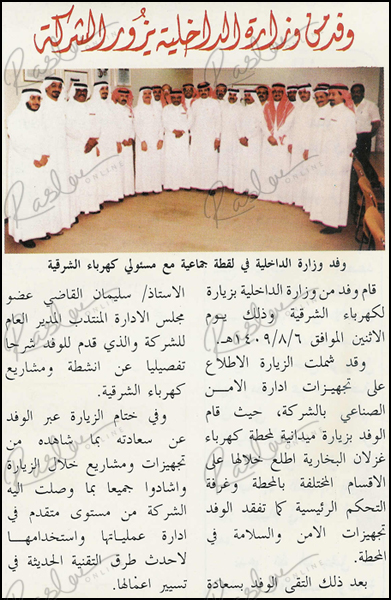 وفد من وزارة الداخلية يزور الشركة
وفد وزارة الداخلية في لقطة جماعية مع مسئولي كهرباء الشرقية
قام وفد من وزارة الداخلية بزيارة
لكهرباء الشرقية وذلك يوم
الاثنين الموافق ١٤٠٩/٨/٦هـ.
وقد شملت الزيارة الاطلاع
على تجهيزات ادارة الامن
الصناعي بالشركة، حيث قام
الوفد بزيارة ميدانية لمحطة كهرباء
غزلان البخارية اطلع خلالها على
الاقسام المختلفة بالمحطة وغرفة
التحكم الرئيسية كما تفقد الوفد
تجهيزات الامن والسلامة في
المحطة.
بعد ذلك التقى الوفد بسعادة
الاستاذ/ سليمان القاضي عضو
مجلس الادارة المنتدب المدير العام
للشركة والذي قدم للوفد شرحا
تفصيليا عن انشطة ومشاريع
كهرباء الشرقية.
وفي ختام الزيارة عبر الوفد
عن سعادته بما شاهده من
تجهيزات ومشاريع خلال الزيارة
واشادوا جميعا بما وصلت اليه
الشركة من مستوى متقدم في
ادارة عملياتها واستخدامها
لاحدث طرق التقنية الحديثة في
تسيير اعمالها.
Raslow
ONLINE